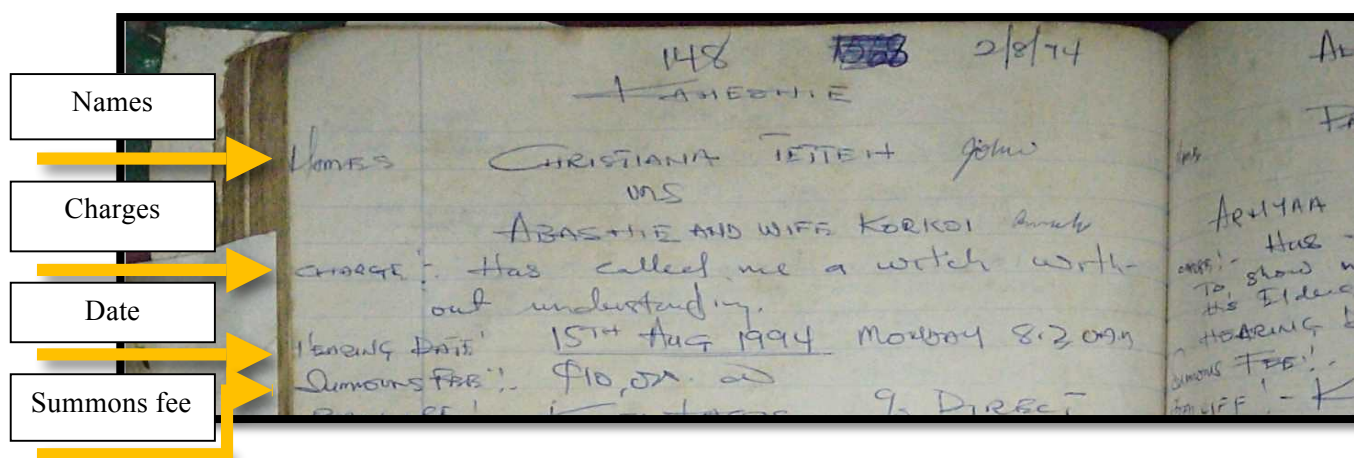 Names
Charges
Date
Summons fee
148 2/8/94
KANESHIE
Names CHRISTIANA TETTEH John
VRS
ABASHIE AND WIFE KORKOI
CHARGE:- Has called me a witch with-
out understanding.
HEARING DATE: 15TH AUG 1994 MONDAY 8.30am
Summons FEE:- ₵10,
9. DIRECT
ARHYAA
Has
To show
His
HEARING
Summons FEE:-